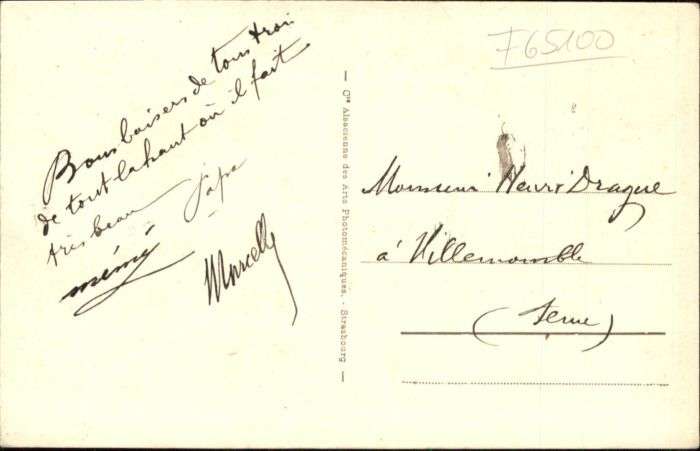 Bons baisers de tous trois
de tout la haut où il fait
très beau Papa
mémé
Marcelle
Cie Alsacienne des Arts Photomécaniques. - Strasbourg
F65100
Monsieur Henri Drague
à Villemomble
(Seine)